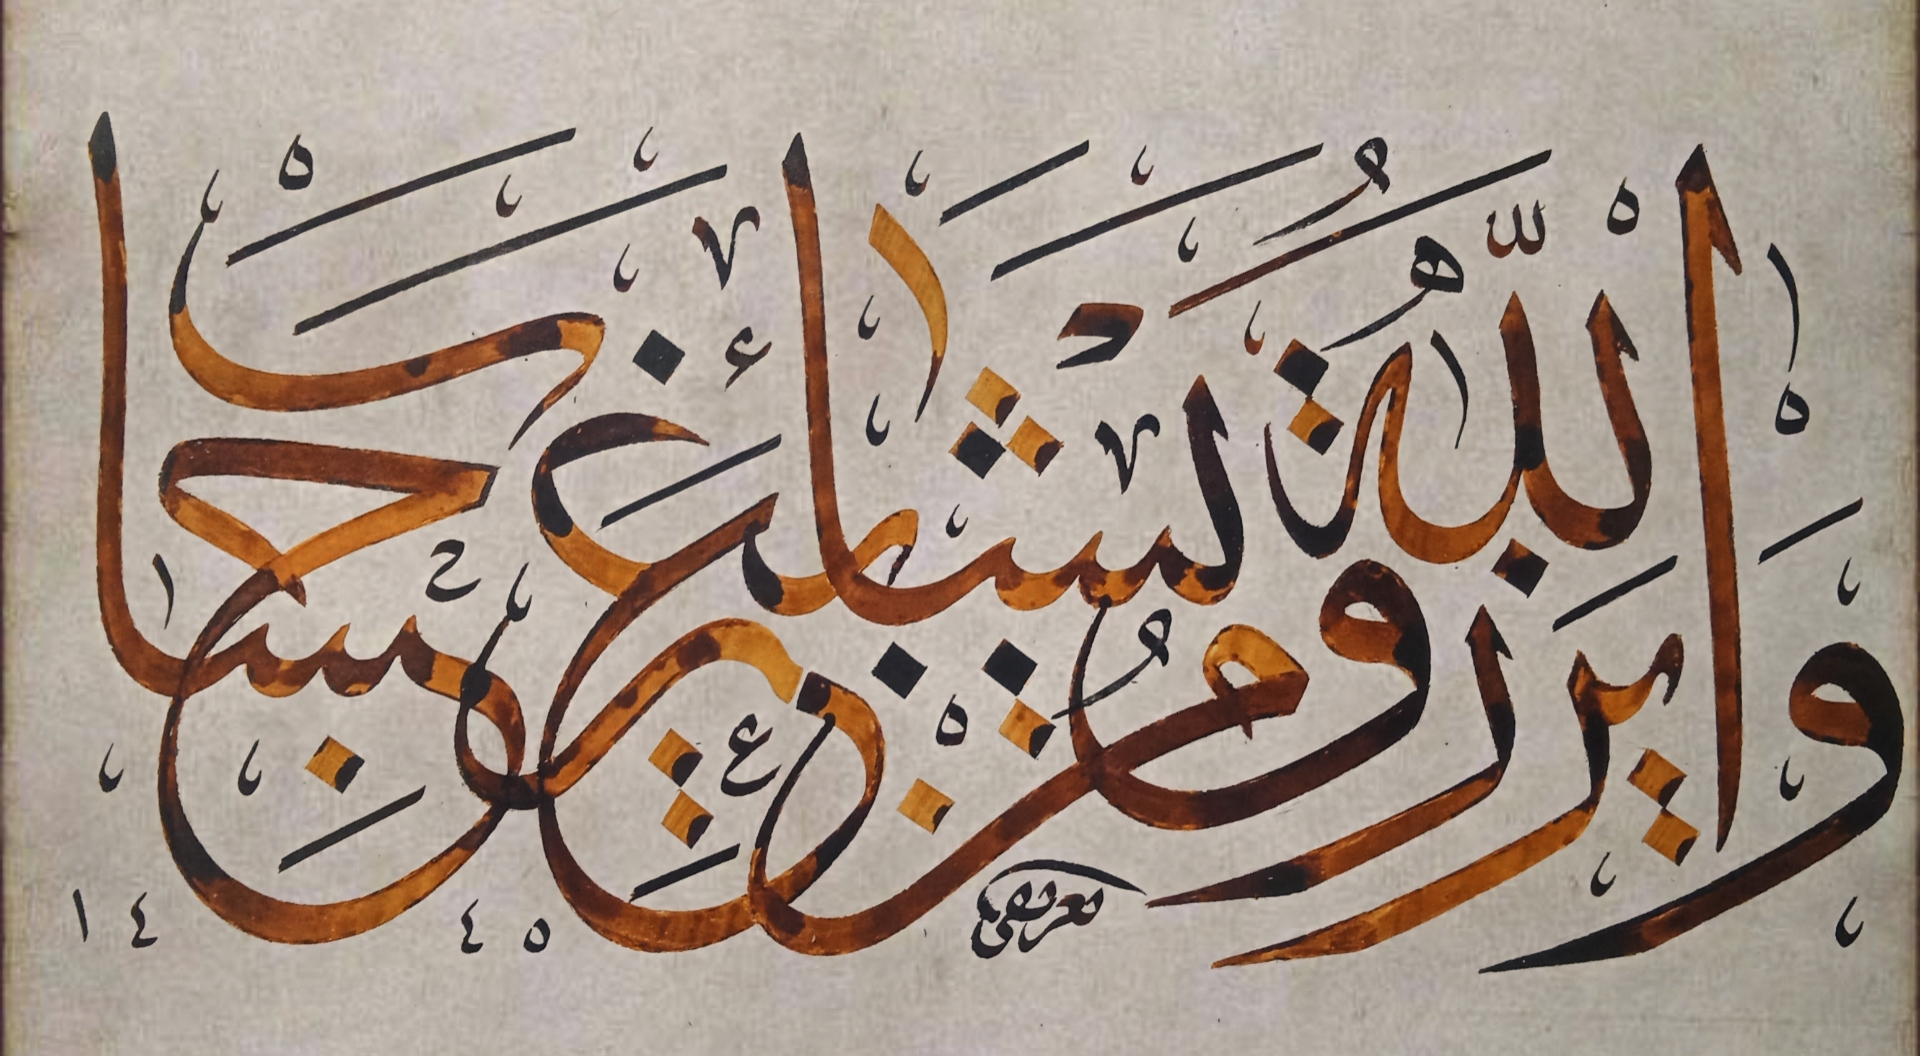 وَاللّٰهُ يَرْزُقُ مَنْ يَشَاءُ بِغَيْرِ حِسَابٍ
١٤٤٥